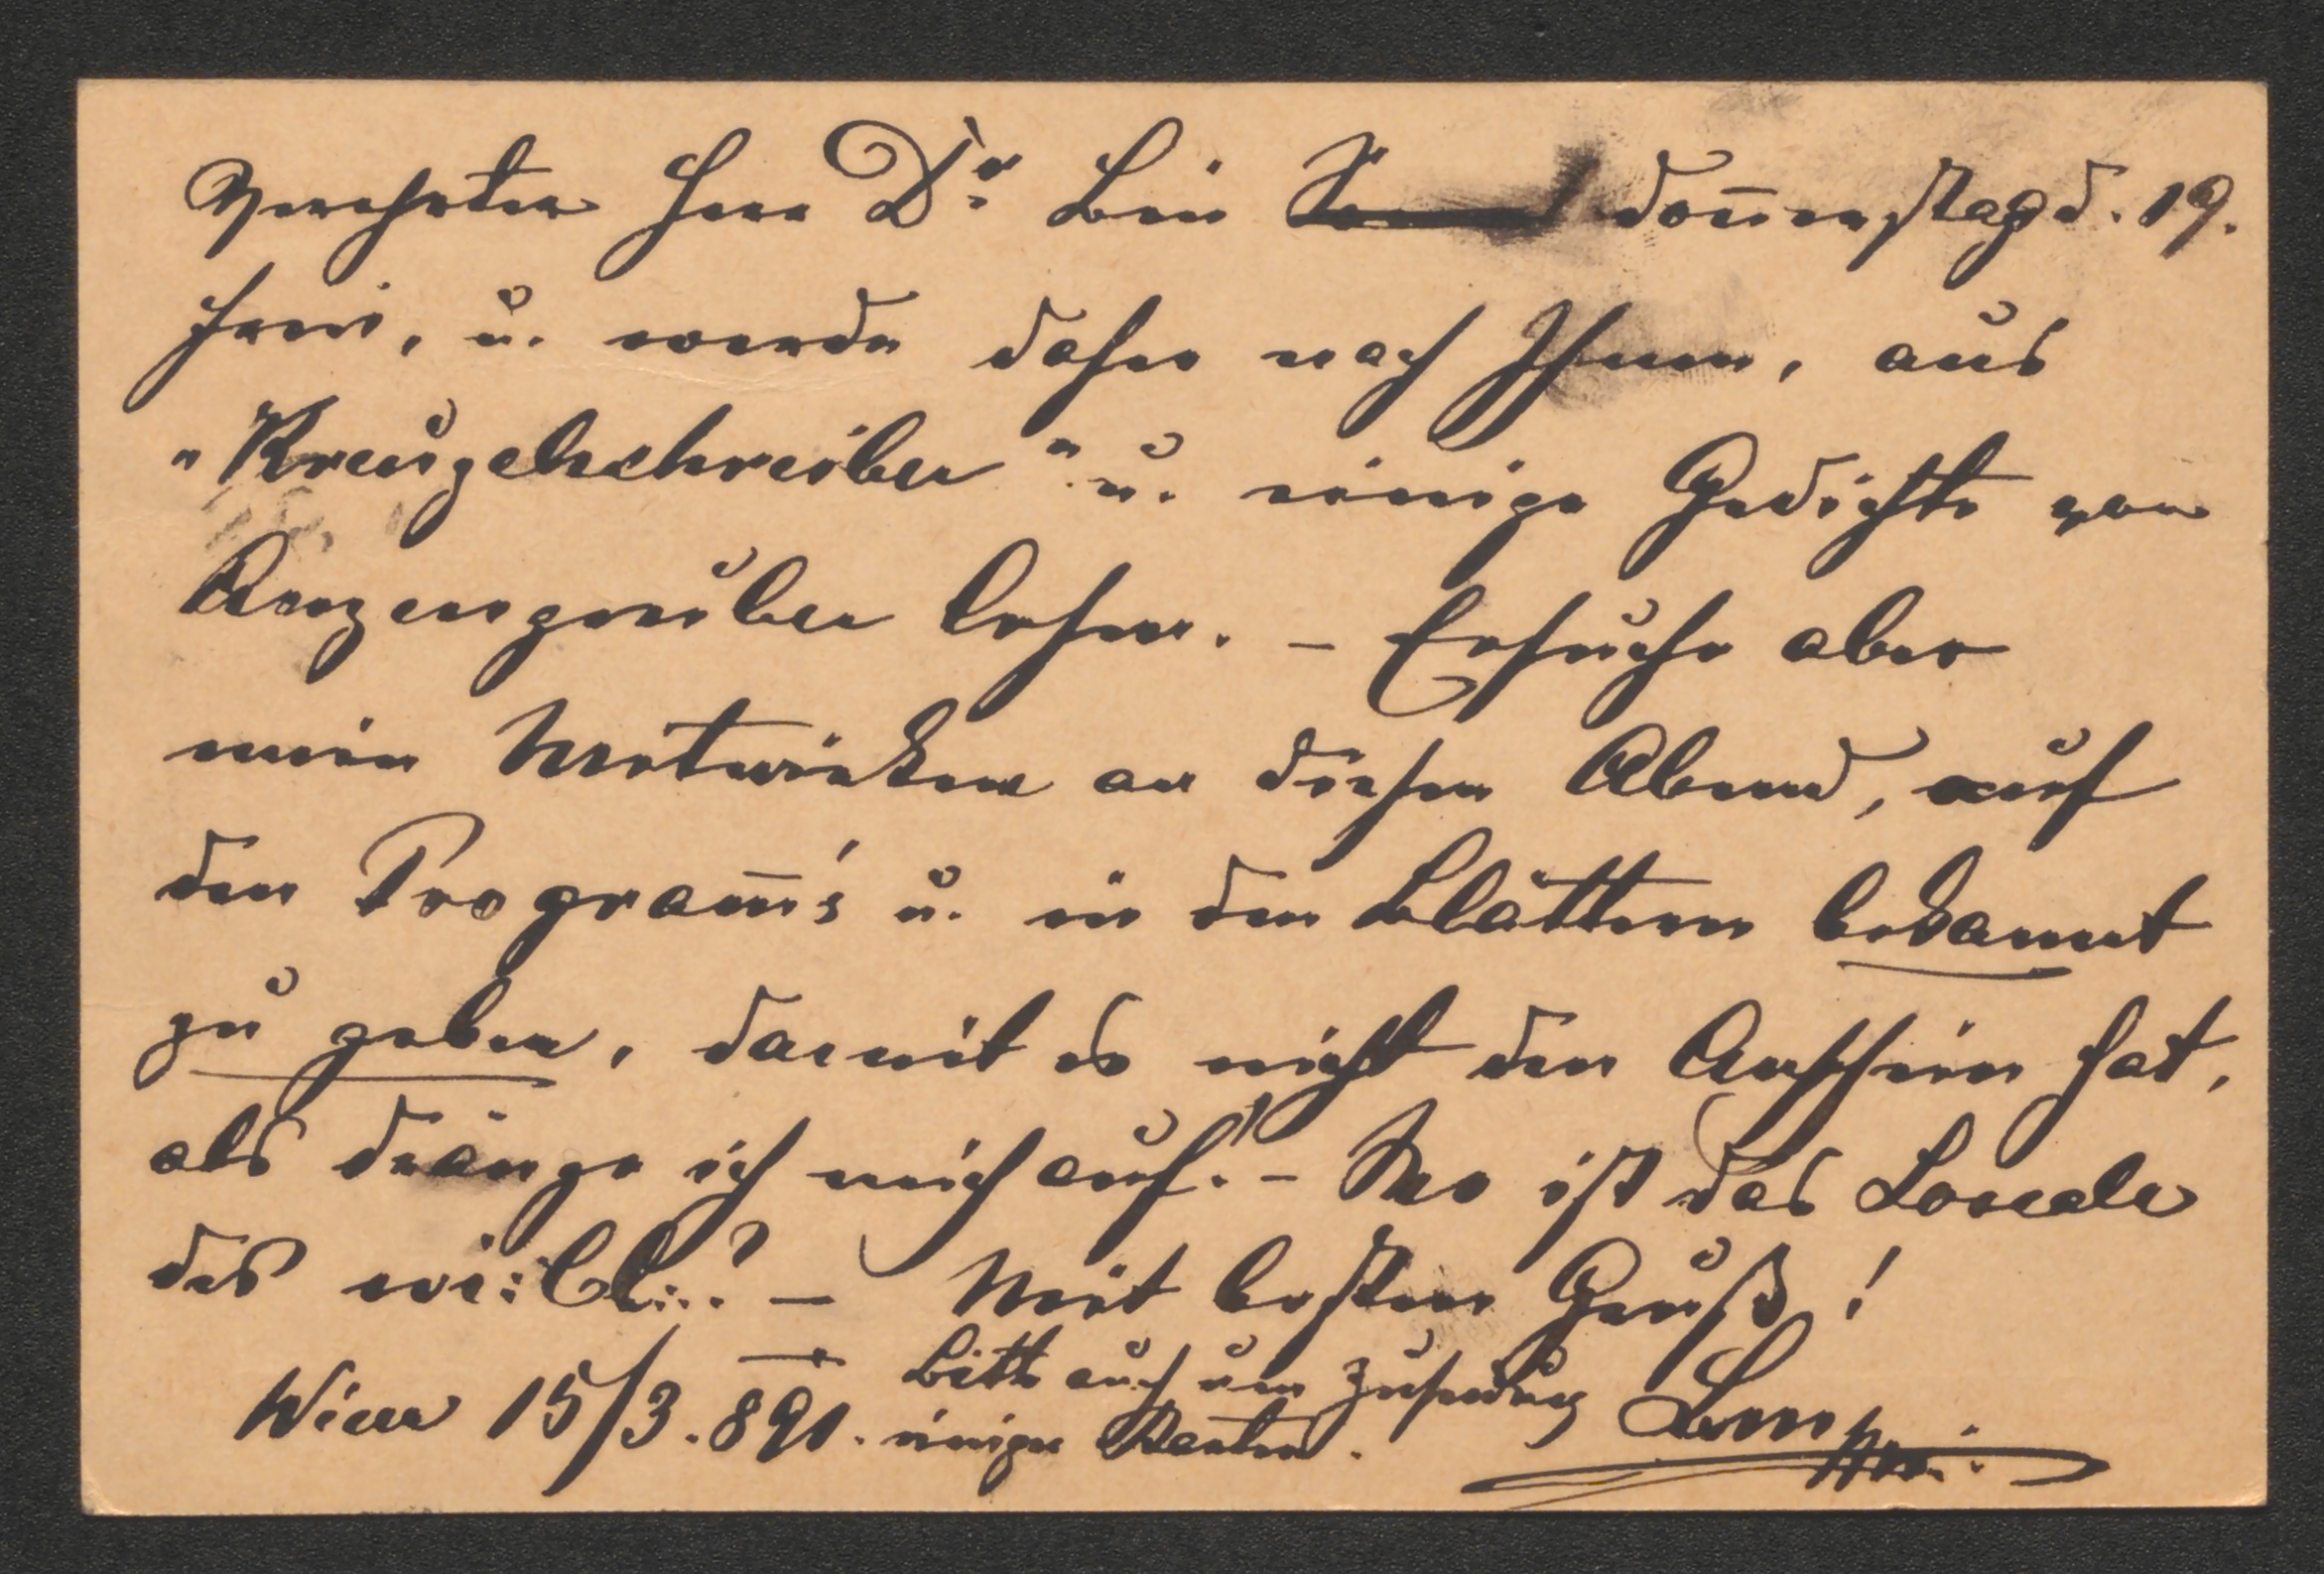 Verehrter Herr Dr. Bin Donnerstag d. 19.
frei, u. werde daher nach Ihnen, aus
„Kreuzelschreiber" u. einige Gedichte von
Anzengruber lesen. – Ersuche aber
mein Mitwirken an diesen Abend, auf
den Program̅'s u. in den Blättern bekannt
zu geben, damit es nicht den Anschein hat,
als dränge ich mich auf! – Wo ist das Locale
des – Mit besten Gruß!
Bitte auch um Zusendung
Wien 15/3. 891. einiger Karten.